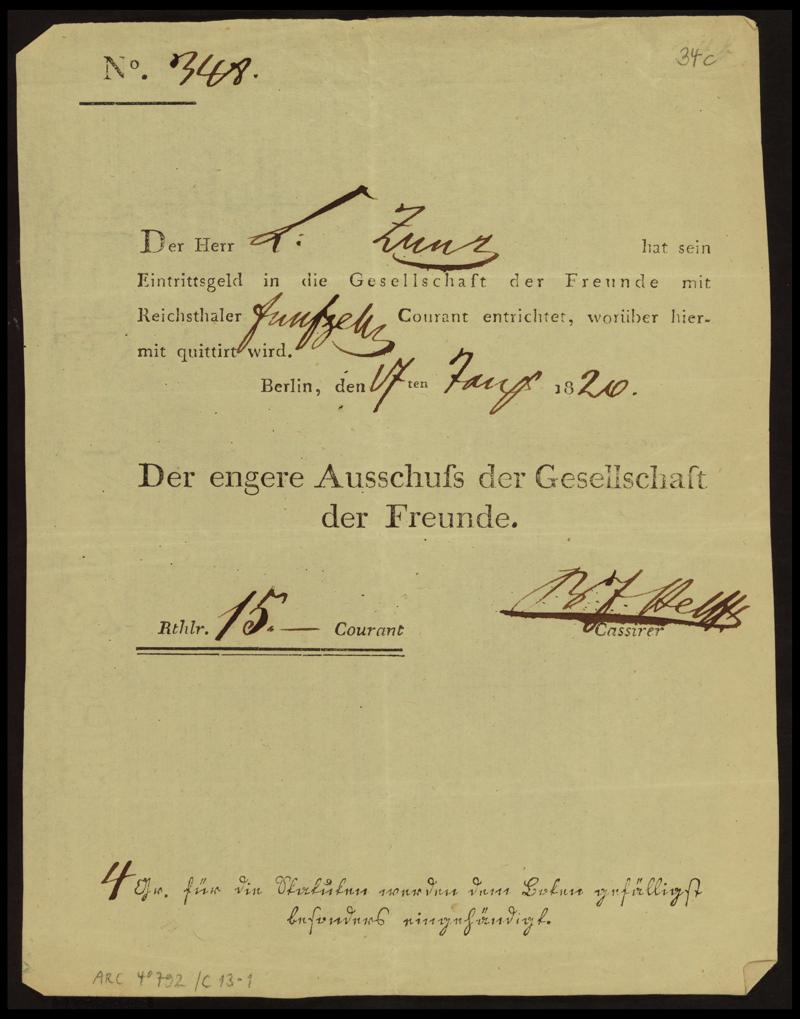 No. 348.
34c
Der Herr L. Zunz hat sein
Eintrittsgeld in die Gesellschaft der Freunde mit
Reichsthaler funfzehn Courant entrichtet, worüber hier-
mit quittirt wird.
Berlin, den 17ten Jany 1820.
Der engere Ausschuſs der Gesellschaft
der Freunde.
Rthlr. 15. — Courant
B. J. Helfft
Cassirer
4 Gr. für die Statuten werden dem Boten gefälligst
besonders eingehändigt.
ARC 4° 792 /C 13-1